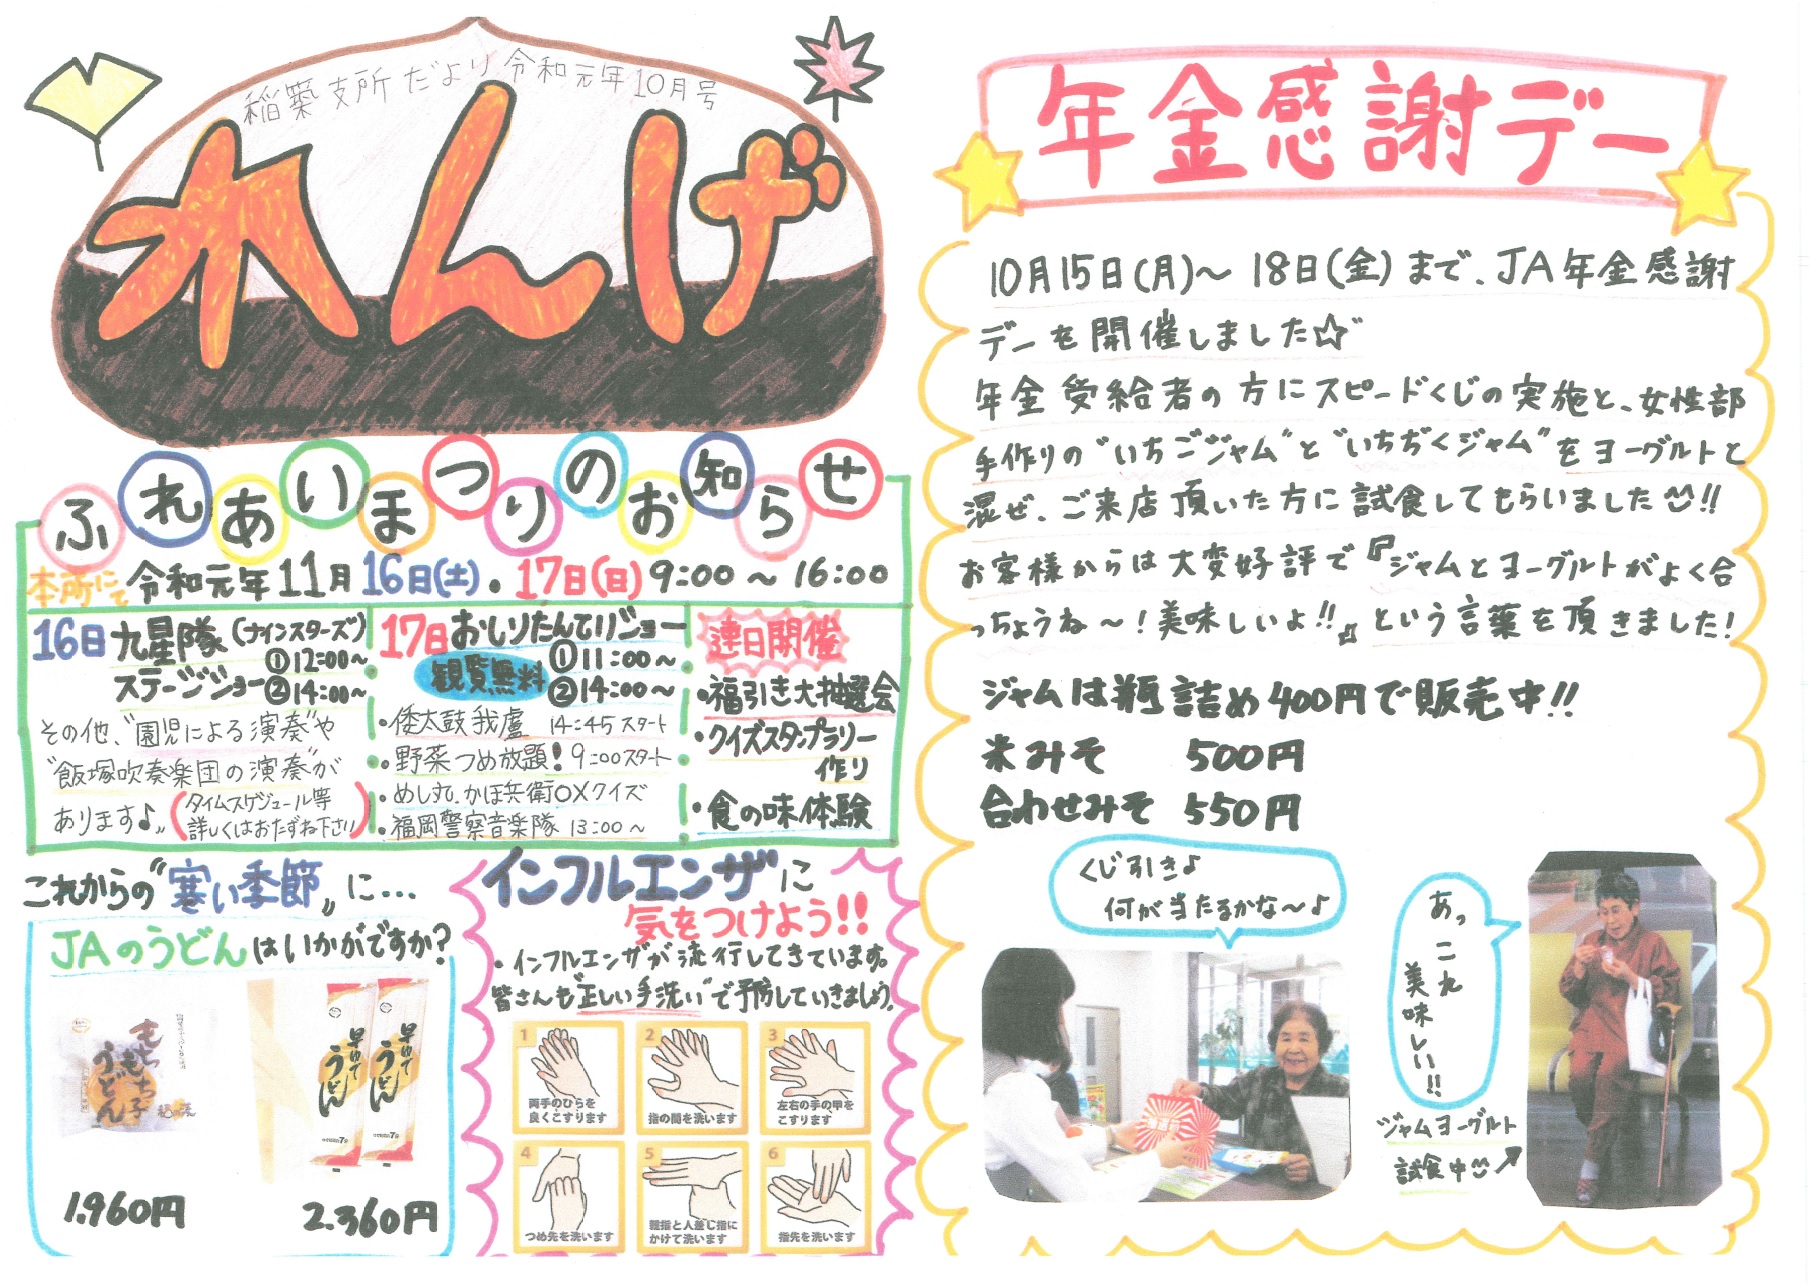 稲築支所だより 令和元年10月号
れんげ
ふれあいまつりのお知らせ
本所にて 令和元年11月16日(土)・17日(日) 9:00～16:00
16日 九星隊(ナインスターズ)
ステージショー ①12:00～
②14:00～
その他、"園児による演奏"や
"飯塚吹奏楽団の演奏"が
あります♪
(タイムスケジュール等
詳しくはおたずね下さい)
17日 おしりたんていショー
観覧無料 ①11:00～
②14:00～
・倭太鼓我廬 14:45スタート
・野菜つめ放題! 9:00スタート
・めし丸、かほ兵衛○×クイズ
・福岡警察音楽隊 13:00～
連日開催
・福引き大抽選会
・クイズスタンプラリー
作り
・食の味体験
これからの"寒い季節"に…
JAのうどんはいかがですか?
もちもちっ子
うどん
早ゆで
うどん
早ゆで
うどん
1.960円
2.360円
インフルエンザに
気をつけよう!!
・インフルエンザが流行してきています。
皆さんも"正しい手洗い"で予防していきましょう。
1
両手のひらを
良くこすります
2
指の間を洗います
3
左右の手の甲を
こすります
4
つめ先を洗います
5
親指と人差し指に
かけて洗います
6
指先を洗います
年金感謝デー
10月15日(月)～18日(金)まで、JA年金感謝
デーを開催しました☆
年金受給者の方にスピードくじの実施と、女性部
手作りの"いちごジャム"と"いちぢくジャム"をヨーグルトと
混ぜ、ご来店頂いた方に試食してもらいました!!
お客様からは大変好評で『ジャムとヨーグルトがよく合
っちょうね～!美味しいよ!!』という言葉を頂きました!
ジャムは瓶詰め400円で販売中!!
米みそ 500円
合わせみそ 550円
くじ引き♪
何が当たるかな～♪
あっ
これ
美味しい!!
ジャムヨーグルト
試食中